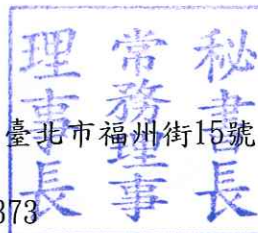 秘書長
常務理事
理事長
臺北市福州街15號
373